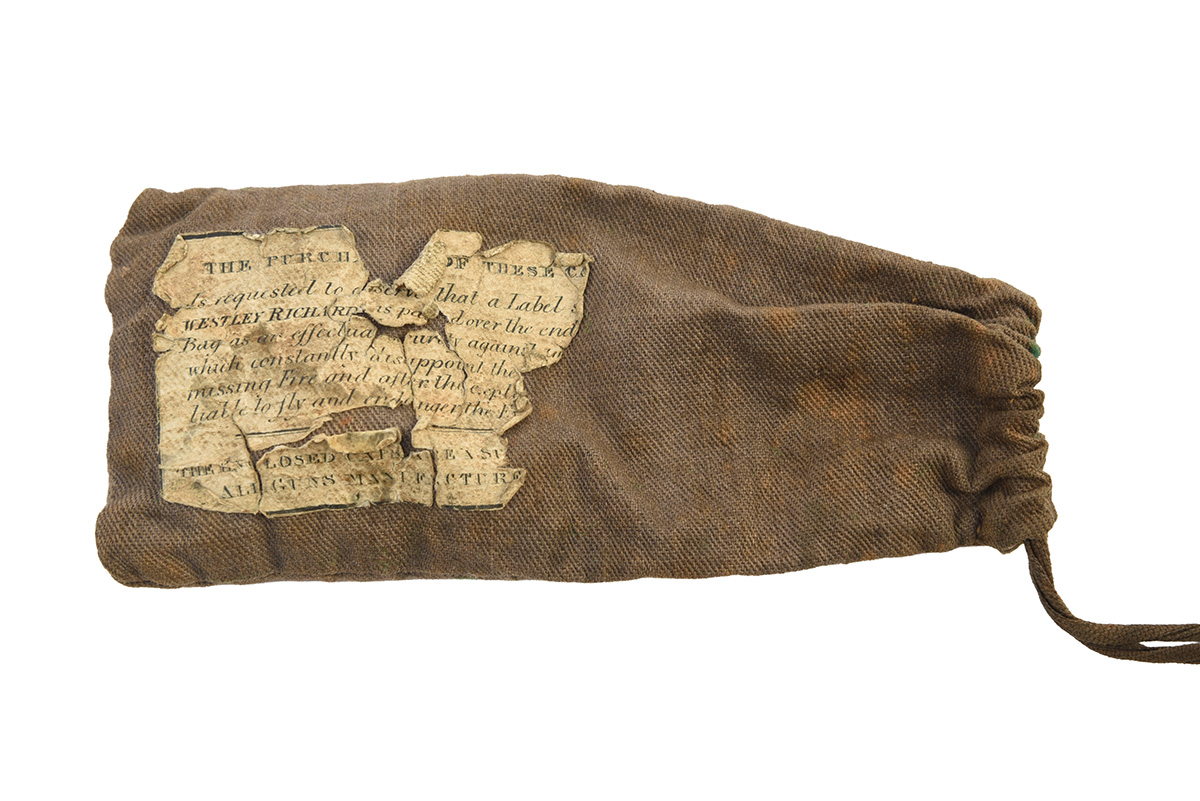 THE PURCH OF THESE CA
Is requested to observe that a Label
WESTLEY RICHARD is pa d over the end
Bag as an effectua urity against
which constantly disappoint the
missing Fire and after the explo
liable to fly and endanger the
THE ENCLOSED CAPS ARE A SU
ALL GUNS MANUFACTURE